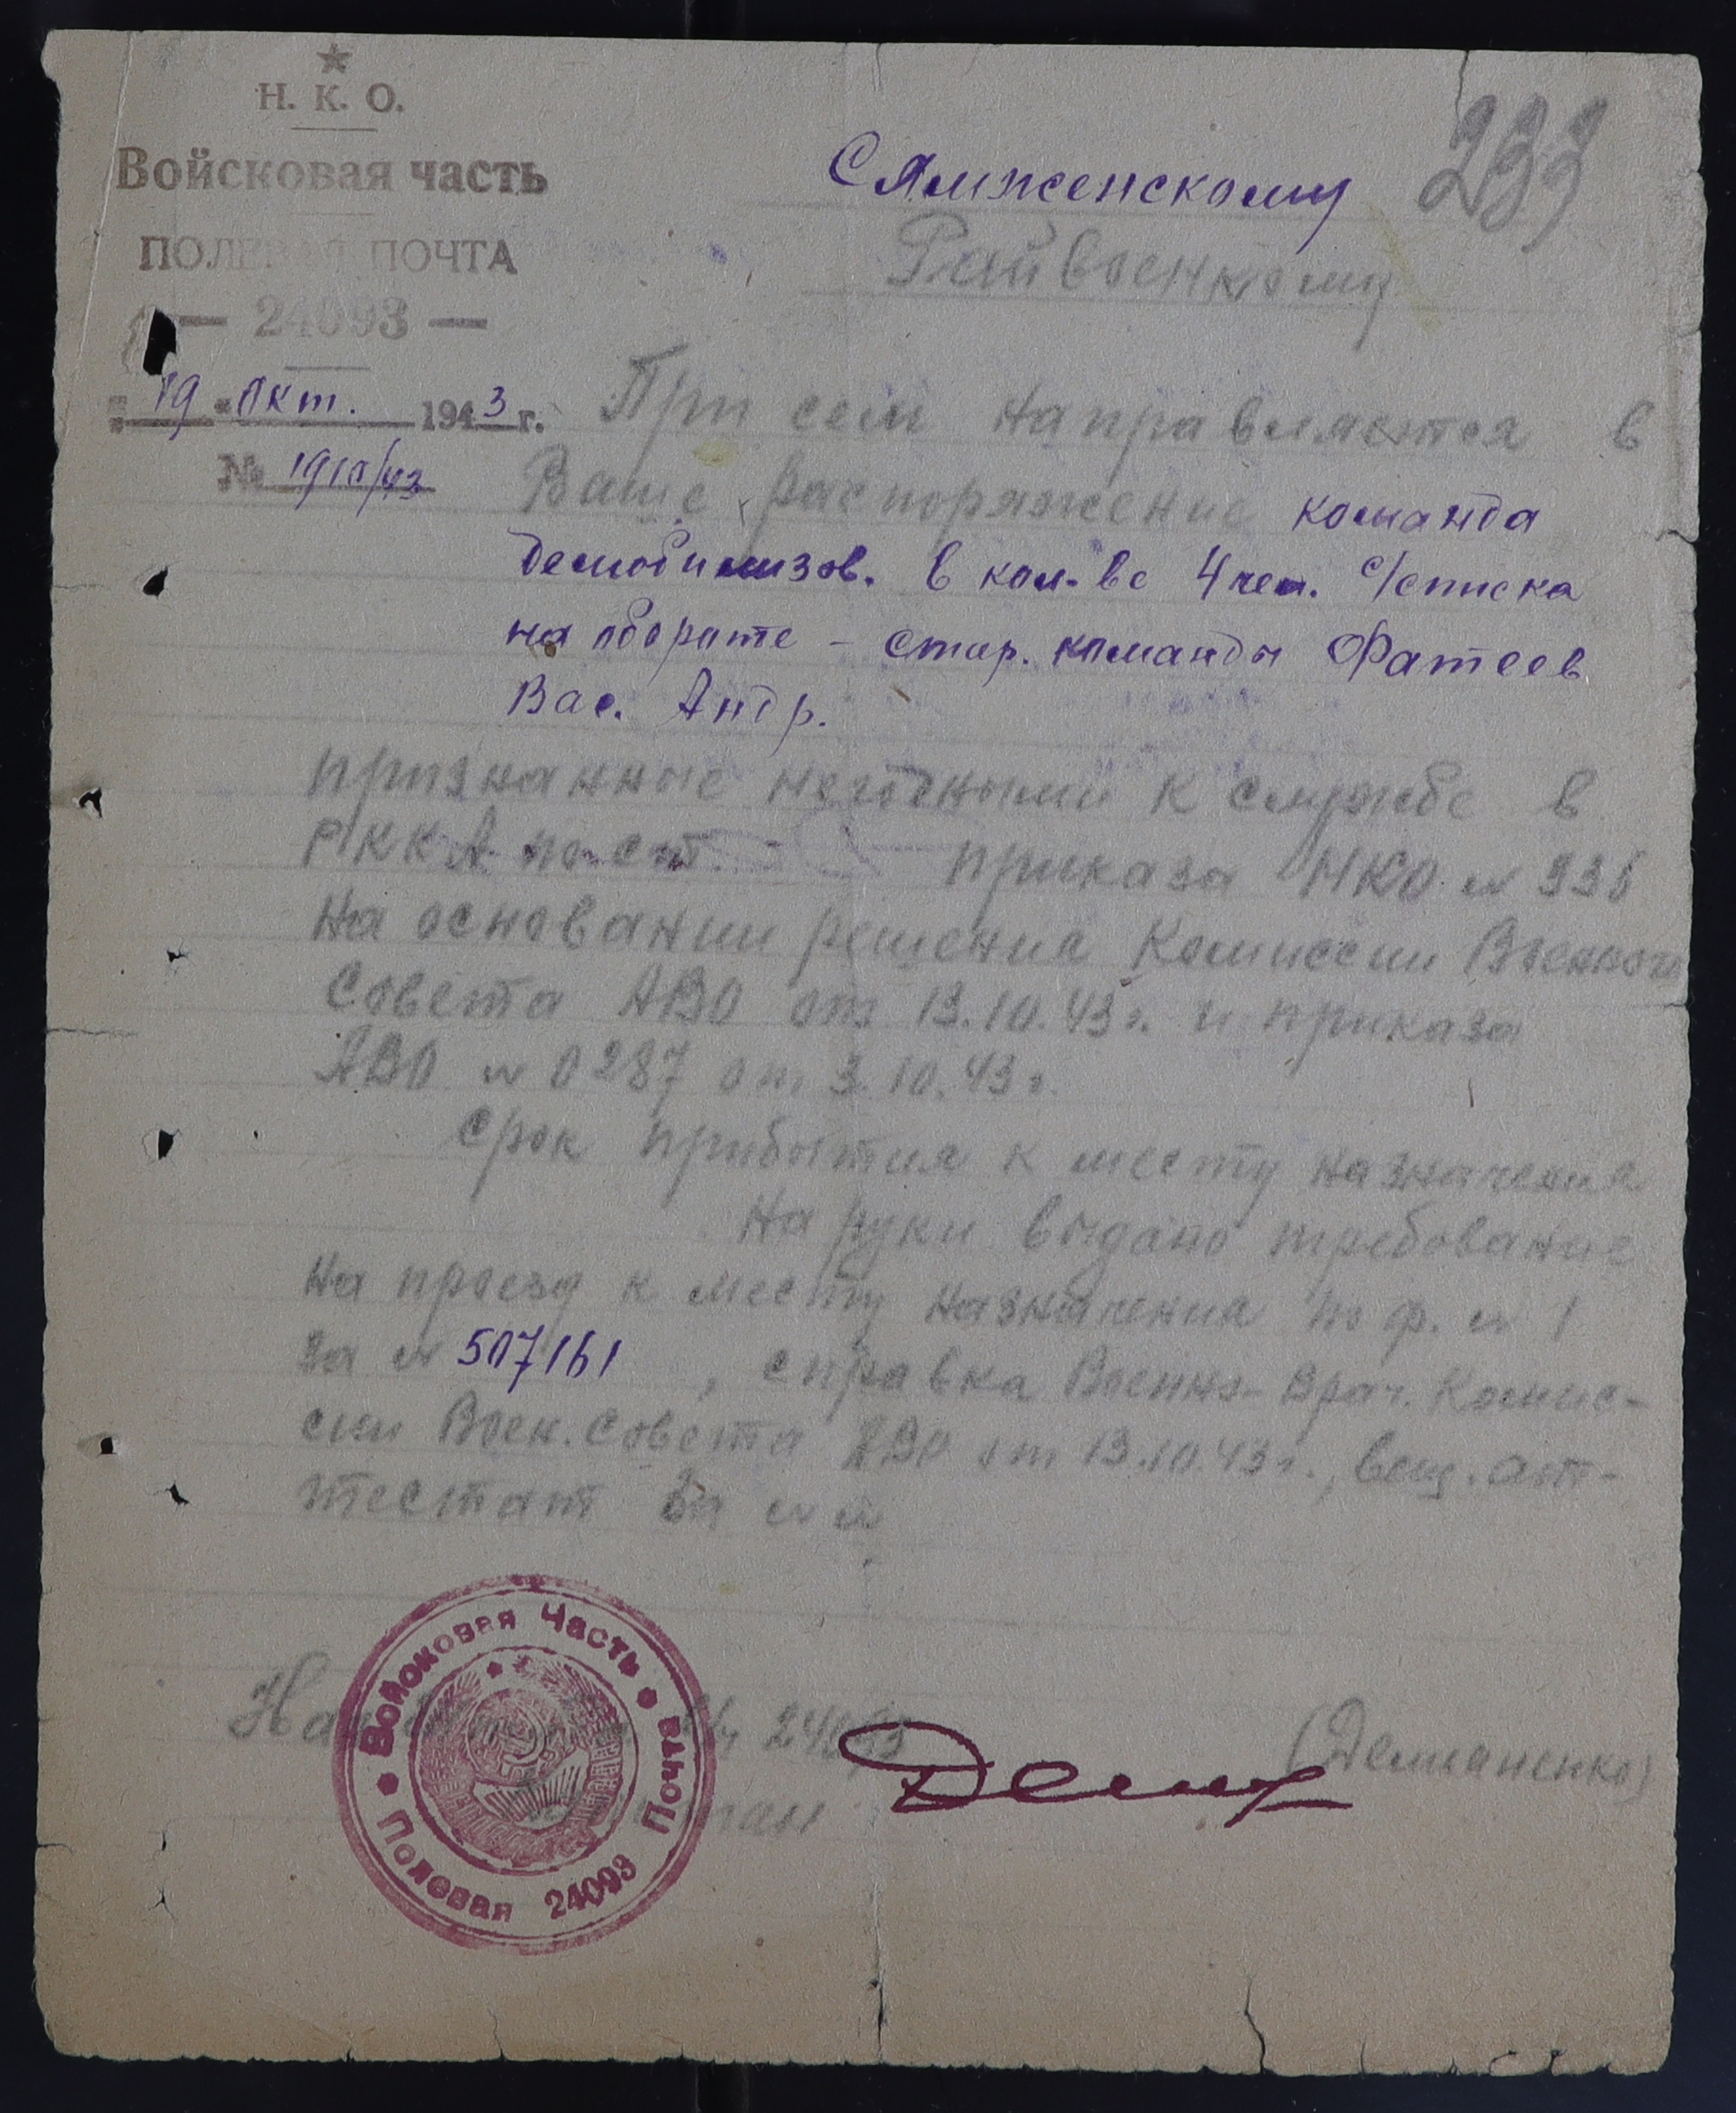 Н. К. О.
Войсковая часть
ПОЛЕВАЯ ПОЧТА
— 24093 —
"19" Окт. 1943 г.
№ 1910/43
233
Сямженскому
Райвоенкому
При сем направляется в
Ваше распоряжение команда
демобилизов. в кол-ве 4 чел. с/списка
на обороте - стар. команды Фатеев
Вас. Андр.
признанные негодными к службе в
РККА по ст. приказа НКО № 336
На основании решения Комиссии Военного
Совета АВО от 13.10.43 г. и приказа
АВО № 0287 от 3.10.43 г.
Срок прибытия к месту назначения
На руки выдано требование
на проезд к месту назначения по ф. № 1
за № 507161, справка Военно-Врач. Комис-
сии Воен. Совета АВО от 13.10.43 г., вещ. ат-
тестат за №
24093
(Демьяненко)
Войсковая Часть
Полевая Почта
24093